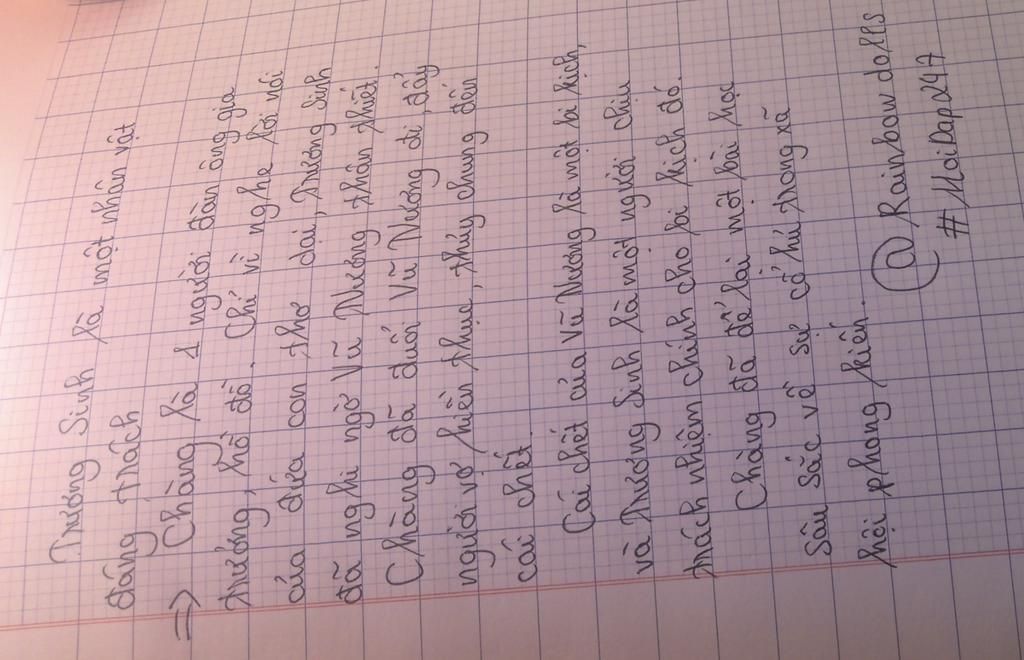 Trương Sinh là một nhân vật
đáng trách
=> Chàng là 1 người đàn ông gia
trưởng, hồ đồ. Chỉ vì nghe lời nói
của đứa con thơ dại, Trương Sinh
đã nghi ngờ Vũ Nương thân thiết.
Chàng đã đuổi Vũ Nương đi, đẩy
người vợ hiền thục, thủy chung đến
cái chết.
Cái chết của Vũ Nương là một bi kịch,
và Trương Sinh là một người chịu
trách nhiệm chính cho bi kịch đó.
Chàng đã để lại một bài học
sâu sắc về sự cổ hủ trong xã
hội phong kiến.
@Rainbowdolls
#HoiDap247